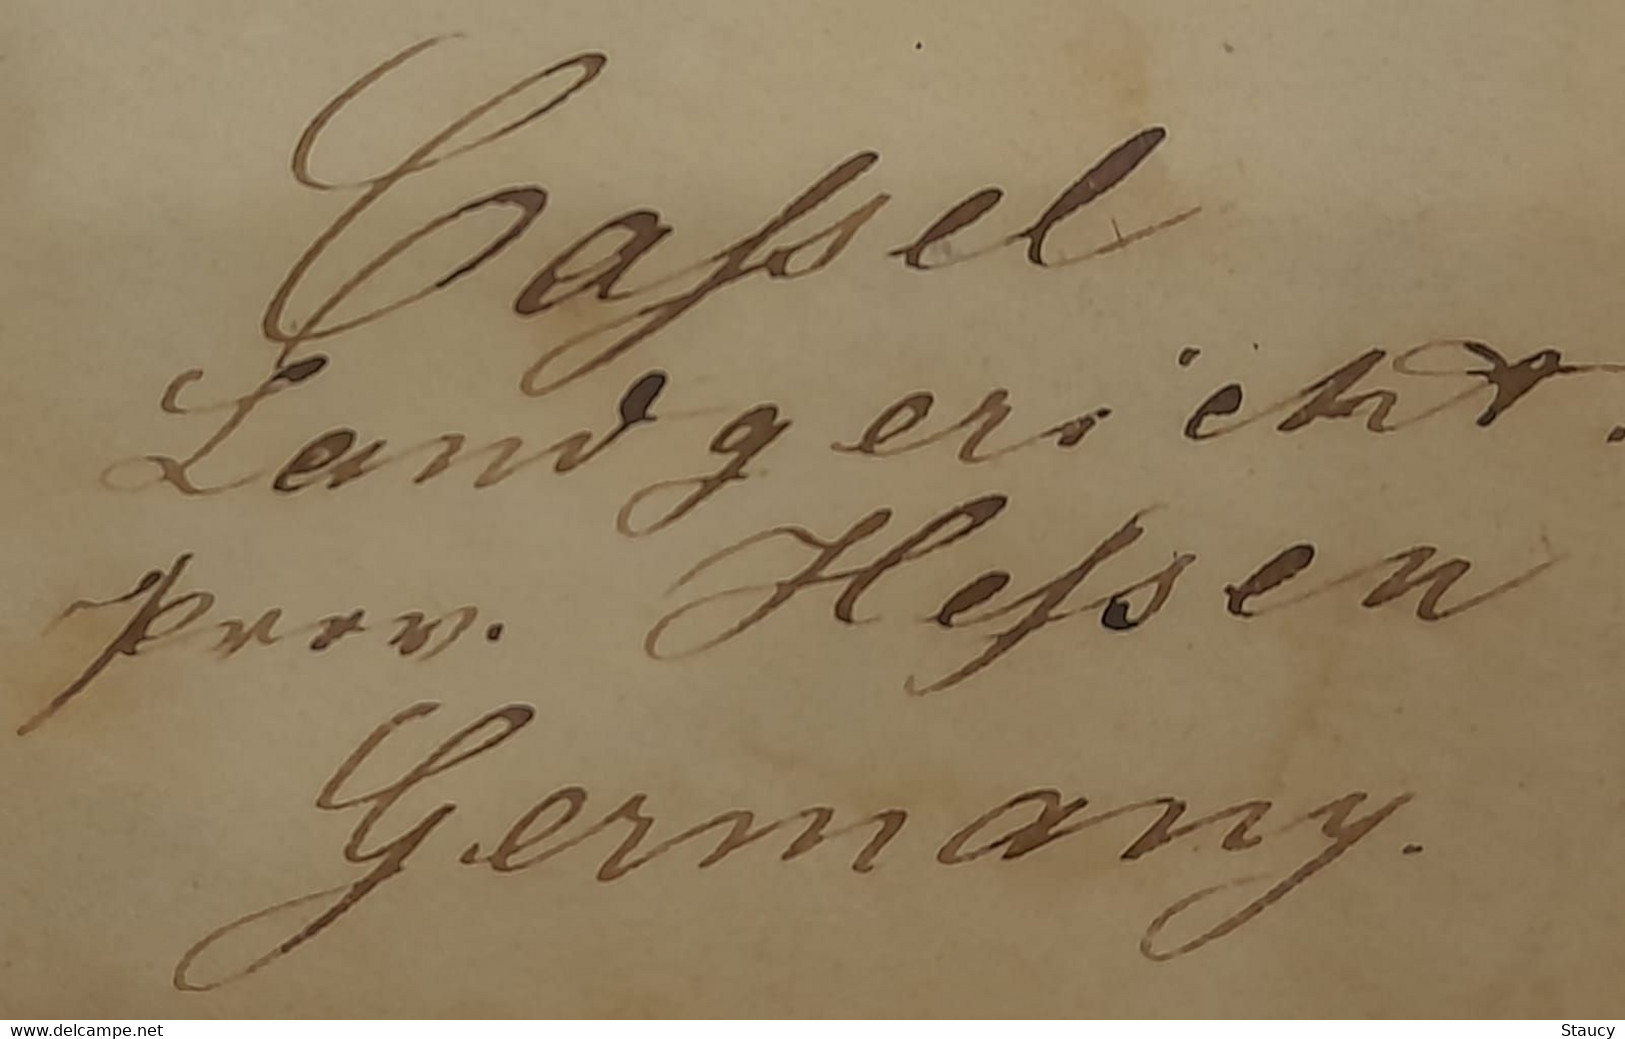 Cassel
Landgericht.
prov. Hessen
Germany.
www.delcampe.net
Staucy